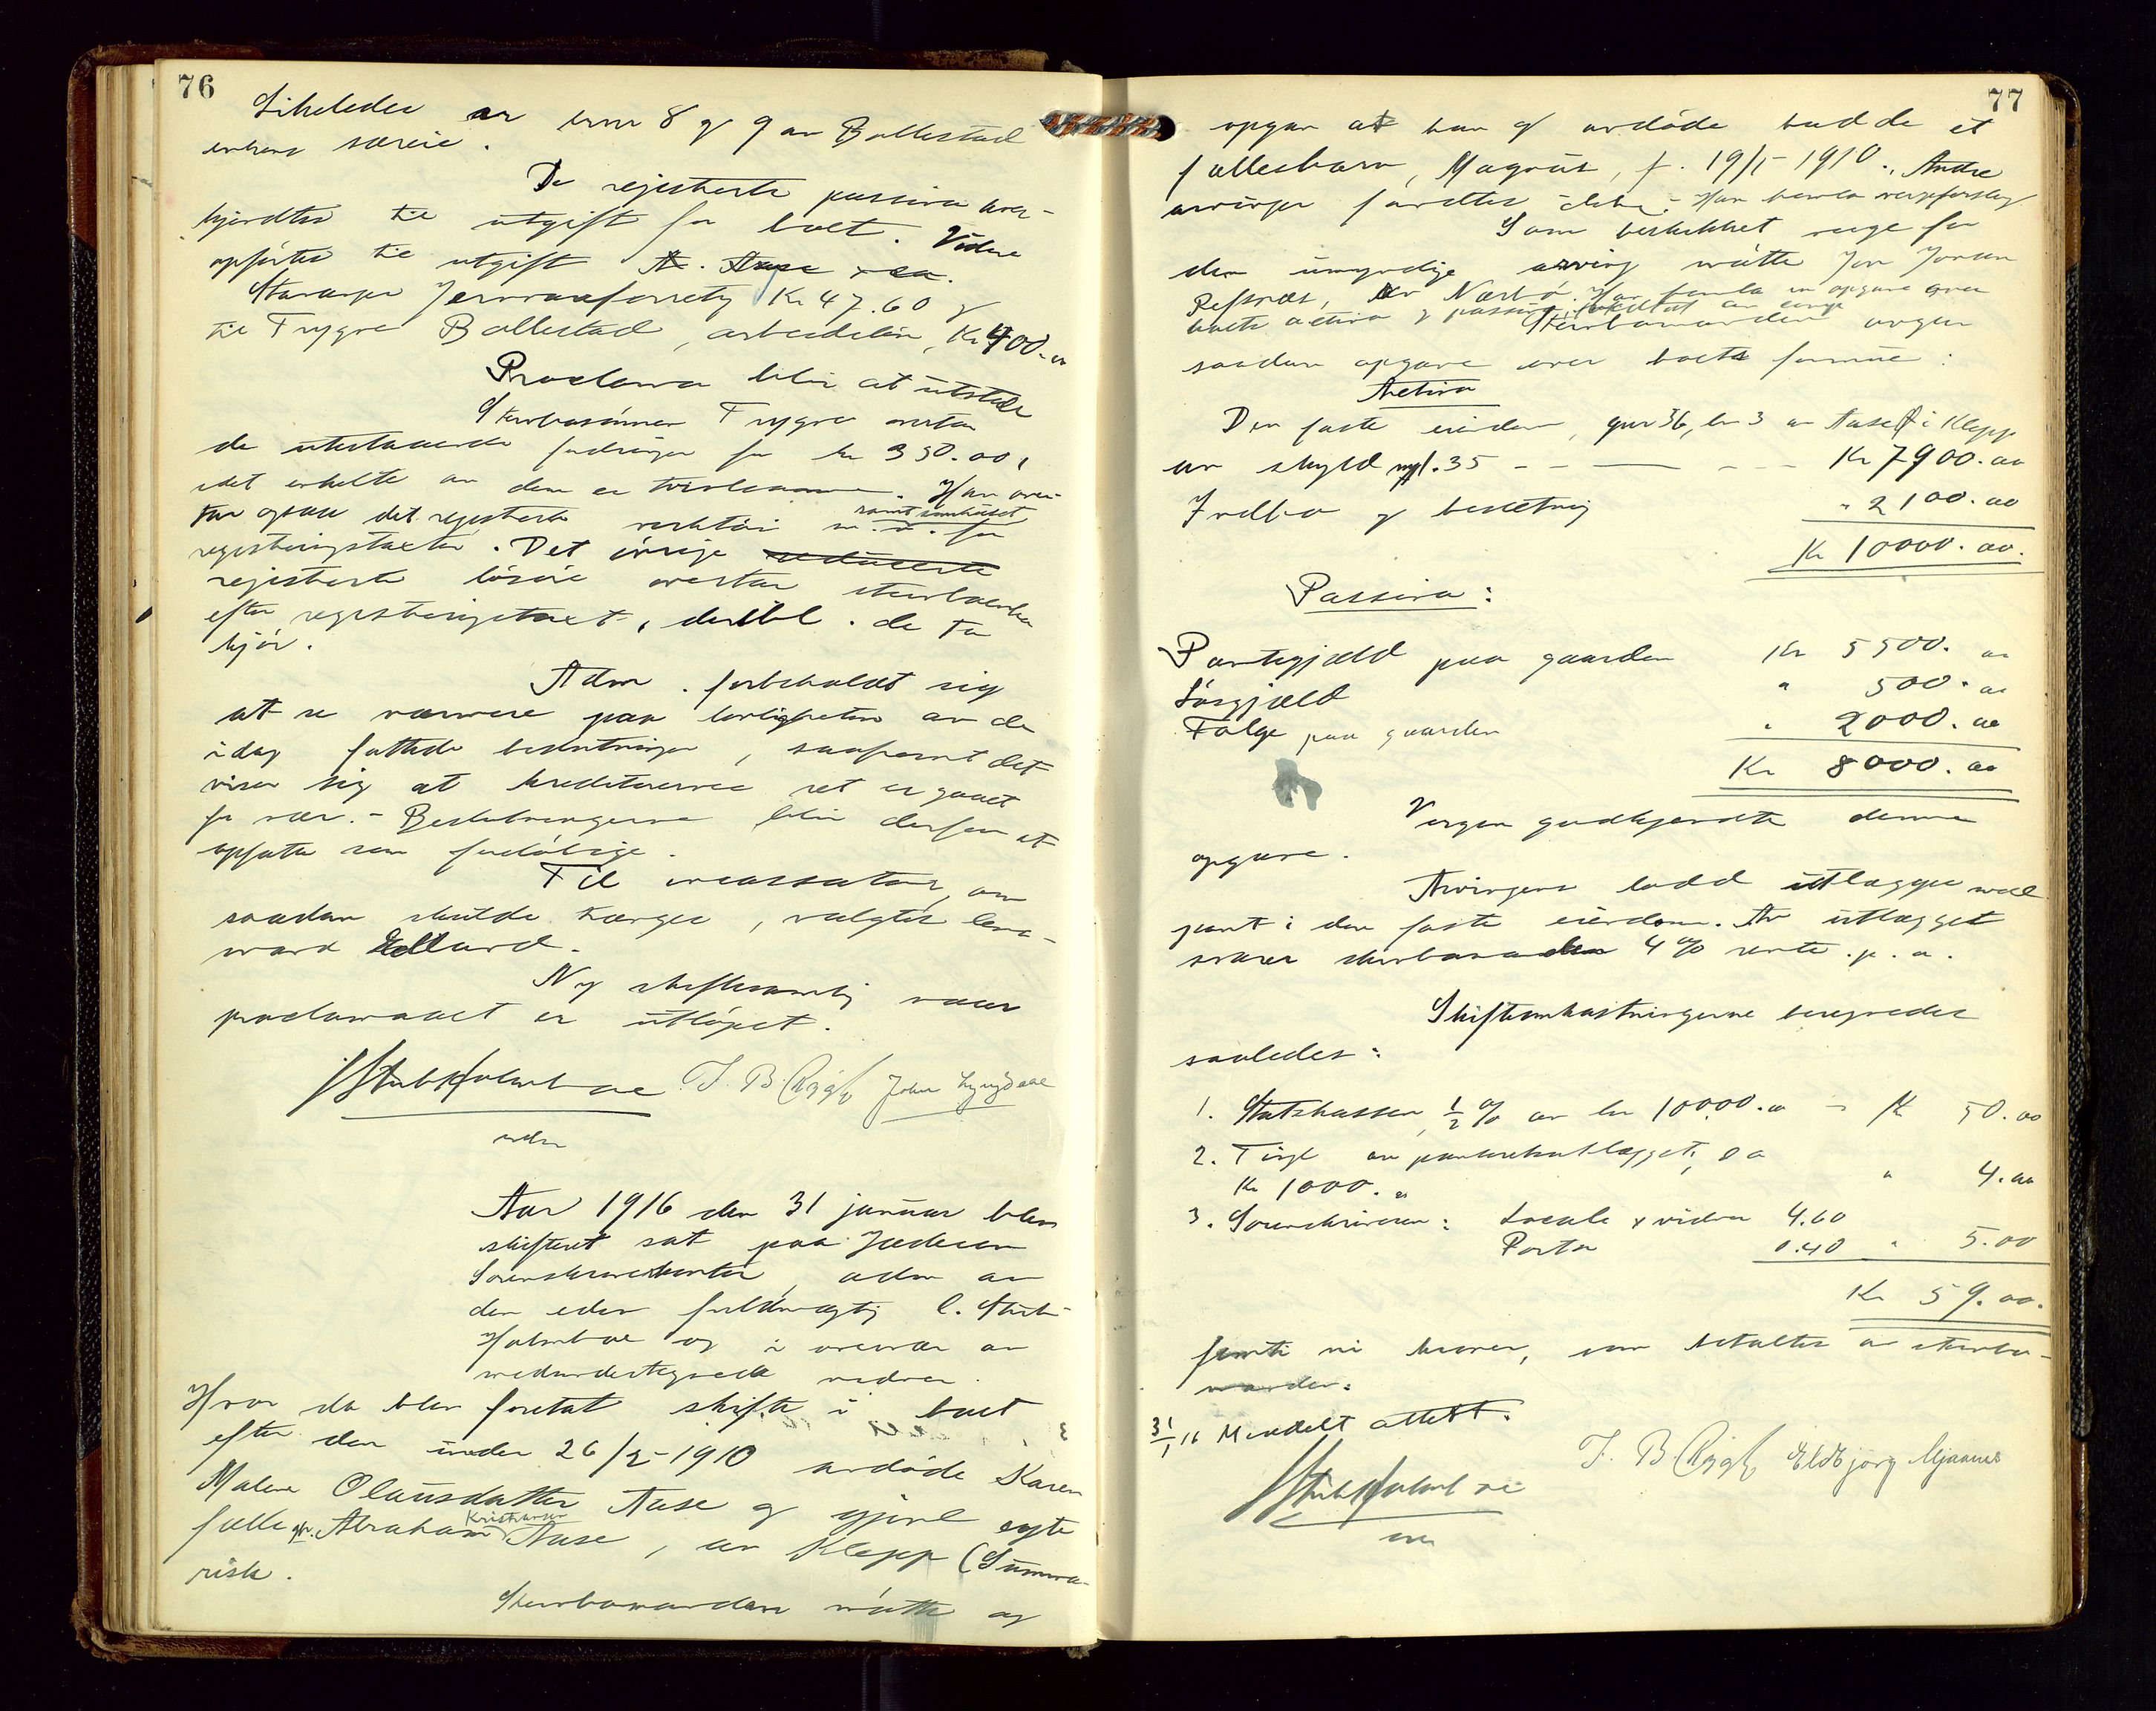 76
Likeledes er bnr 8 og 9 av Bollestad
enkens særeie.
De registrerte passiva aner-
kjendtes til utgift for boet. Videre
opførtes til utgift
Stavanger Jernvareforretg Kr 47.60 og
til Trygve Bollestad, arbeidsløn, Kr 400.00
Proclama blir at utstede
Sterbosønnen Trygve overtar
de utestaaende fordringer for kr 350.00,
idet enkelte av dem er tvilsomme. Han over-
tar ogsaa det registrerte verktøi m.v. for
samt smihuset
registreringstaxten. Det øvrige reducerte
registrerte løsøre overtar sterboenken
efter registreringstaxt, deribl. de to
kjør.
Adm. forbeholdt sig
at se nærmere paa lovligheten av de
idag fattede beslutninger, saafremt det
viser sig at kreditorernes ret er gaaet
for nær. - Beslutningerne blir derfor at
opfatte som foreløbige.
Til incassator, om
saadan skulde trænges, valgtes lens-
mand
Ny skiftesamlg naar
proclamaet er utløpet.
Stub Holmboe T. B. Rygh John Lyngdal
adm
Aar 1916 den 31 januar blev
skifteret sat paa Jæderen
Sorenskriverkontor, adm av
den edsv fuldmægtig C. Stub-
Holmboe og i overvær av
medundertegnede vidner.
Hvor da blev foretat skifte i boet
efter den under 26/2-1910 avdøde Karen
Malene Olausdatter Aase og gjenl egte
fælle gbr. Abraham Kristiansen Aase, av Klepp (Summa-
risk.
Sterbomanden møtte og
77
opgav at han og avdøde hadde et
fællesbarn, Magnus, f. 19/1-1910. Andre
arvinger fandtes ikke. Han henla vergeforslag
Som beskikket verge for
den umyndige arving møtte Jon Jonsen
Refsnes, av Nærbø. Han femla en opgave over
boets activa og passiva,
Sterbomanden avgav
saadan opgave over boets formue:
Activa
Den faste eiendom, gnr 36, bnr 3 av Aase i Klepp
av skyld m. 35 - - - - - Kr 7900.00
Indbo og besætning " 2100.00
Kr 10000.00.
Passiva:
Pantegjæld paa gaarden Kr 5500.00
Løsgjæld " 500.00
Følge paa gaarden " 2000.00
Kr 8000.00
Vergen godkjendte denne
opgave.
Arvingens lodd utlægges med
pant i den faste eiendom. Av utlægget
svarer sterbomanden 4% rente p.a.
Skifteomkostningerne beregnedes
saaledes:
1. Statskassen, ½ % av kr 10000.00 - Kr 50.00
2. Tingl av panteretsutlægget, a
Kr 1000.00 " 4.00
3. Sorenskriveren: Locale & vidner 4.60
Porto 0.40 " 5.00
Kr 59.00.
femti ni kroner, som betaltes av sterbo-
manden.
31/1 16 Meddelt attest.
Stub Holmboe T. B. Rygh Eldbjørg Mjaanes